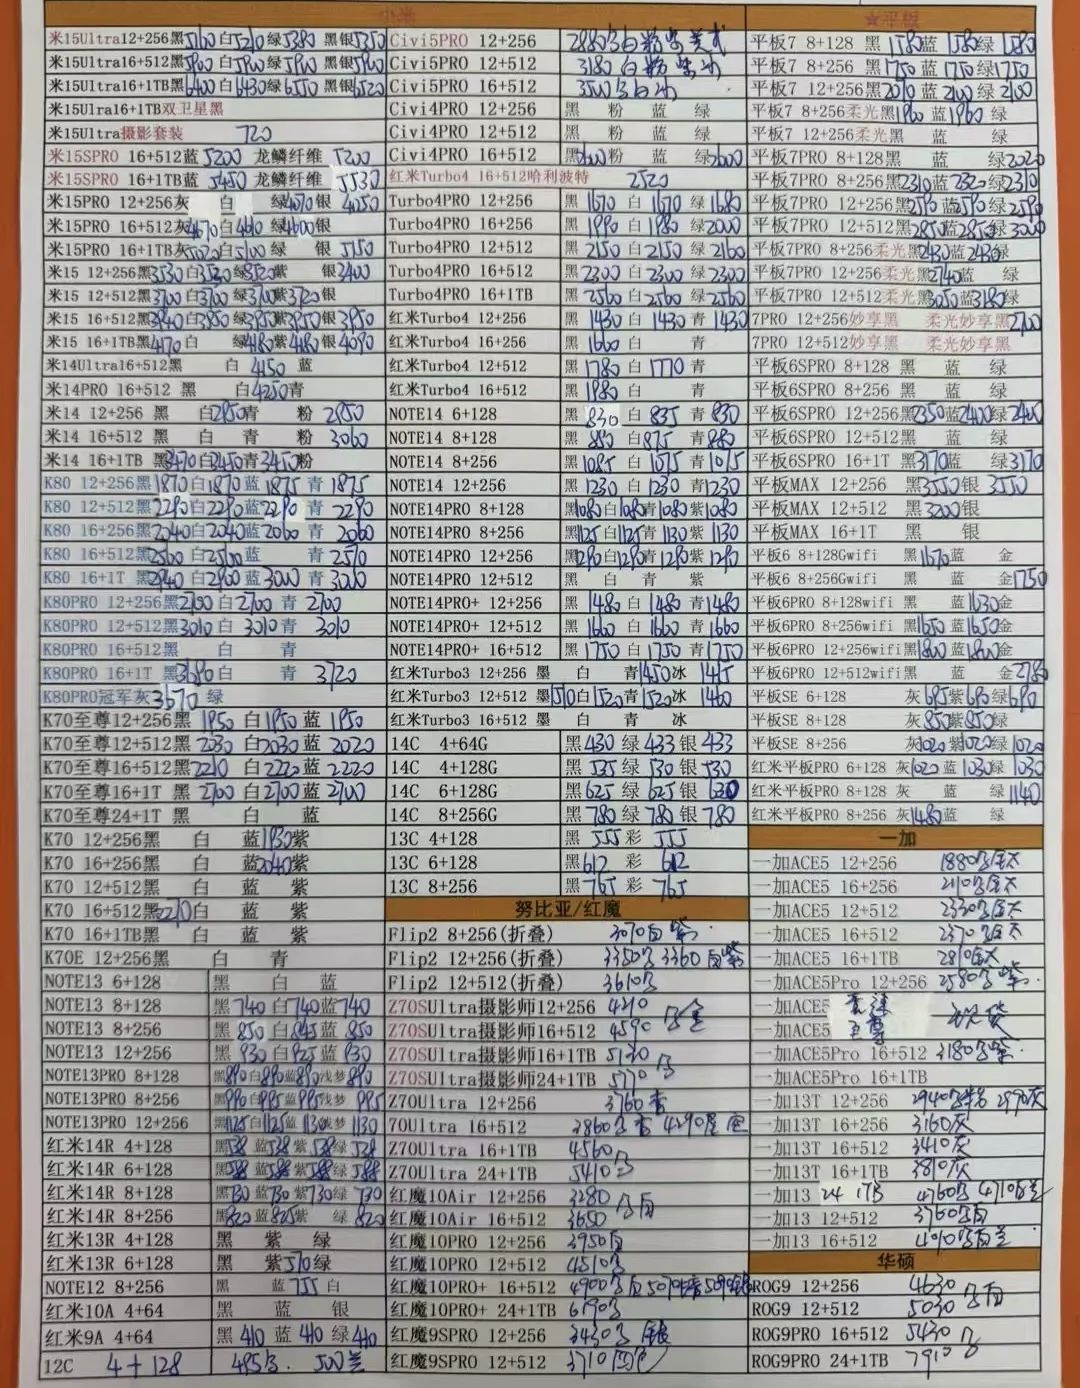 小米
米15Ultra12+256黑5160白5210绿5380 黑银5350
米15Ultra16+512黑 白 绿 黑银
米15Ultra16+1TB黑6400白6430绿6550 黑银6520
米15Ulra16+1TB双卫星黑
米15Ultra摄影套装 720
米15SPRO 16+512蓝5200 龙鳞纤维 5200
米15SPRO 16+1TB蓝5450 龙鳞纤维 5530
米15PRO 12+256灰 白 绿4070银 4050
米15PRO 16+512灰4670白4610绿4600银
米15PRO 16+1TB灰5020白5100绿 银 5150
米15 12+256黑3530白3520绿3520紫 银3400
米15 12+512黑3700白3700绿3700紫3720银
米15 16+512黑3940白3950绿3950紫3950银 3950
米15 16+1TB黑4170 白 绿4180紫4180银4090
米14Ultra16+512黑 白 4150 蓝
米14PRO 16+512 黑 白4250青
米14 12+256 黑 白2850青 粉 2850
米14 16+512 黑 白 青 粉 3060
米14 16+1TB 黑3470白3450青3450粉
K80 12+256黑1870白1870蓝1875 青 1875
K80 12+512黑2290白2290蓝2290 青 2290
K80 16+256黑2040白2040蓝2060 青 2060
K80 16+512黑2560白2560蓝 青 2570
K80 16+1T 黑2940白2960蓝3000青 3000
K80PRO 12+256黑2700白2700 青 2700
K80PRO 12+512黑3010白 3010青 3010
K80PRO 16+512黑 白 青
K80PRO 16+1T 黑3680白 青 3720
K80PRO冠军灰3670 绿
K70至尊12+256黑 1950 白1950蓝 1950
K70至尊12+512黑 2030 白2030蓝 2020
K70至尊16+512黑2210 白2220蓝 2220
K70至尊16+1T 黑 2700 白2700蓝 2700
K70至尊24+1T 黑 白 蓝
K70 12+256黑 白 蓝1930紫
K70 16+256黑 白 蓝2040紫
K70 12+512黑 白 蓝 紫
K70 16+512黑2210白 蓝 紫
K70 16+1TB黑 白 蓝 紫
K70E 12+256黑 白 青
NOTE13 6+128 黑 白 蓝
NOTE13 8+128 黑740白740蓝740
NOTE13 8+256 黑850白845蓝850
NOTE13 12+256 黑930白925蓝930
NOTE13PRO 8+128 黑890白890蓝890浅梦890
NOTE13PRO 8+256 黑990白995蓝995浅梦995
NOTE13PRO 12+256 黑1125白1125蓝1130浅梦1130
红米14R 4+128 黑538蓝538紫538绿528
红米14R 6+128 黑588蓝588紫588绿588
红米14R 8+128 黑730蓝730紫730绿730
红米14R 8+256 黑820蓝825紫 绿820
红米13R 4+128 黑 紫 绿
红米13R 6+128 黑 紫570绿
NOTE12 8+256 黑 蓝755白
红米10A 4+64 黑 蓝 银
红米9A 4+64 黑410蓝410绿410
12C 4+128 485黑. 500兰
Civi5PRO 12+256 2880
Civi5PRO 12+512 3180
Civi5PRO 16+512 3500
Civi4PRO 12+256 黑 粉 蓝 绿
Civi4PRO 12+512 黑 粉 蓝 绿
Civi4PRO 16+512 黑2600粉 蓝 绿2600
红米Turbo4 16+512哈利波特 2520
Turbo4PRO 12+256 黑1670白1670绿1680
Turbo4PRO 16+256 黑1990白1980绿2000
Turbo4PRO 12+512 黑2150白2150绿2160
Turbo4PRO 16+512 黑2300白2300绿2300
Turbo4PRO 16+1TB 黑2560白2560绿2560
红米Turbo4 12+256 黑1430白1430青1430
红米Turbo4 16+256 黑1660白 青
红米Turbo4 12+512 黑1780白1770青
红米Turbo4 16+512 黑1980白 青
NOTE14 6+128 黑830白835青830
NOTE14 8+128 黑880白875青880
NOTE14 8+256 黑1085白1075青1075
NOTE14 12+256 黑1230白1230青1230
NOTE14PRO 8+128 黑1080白1080青1080紫1080
NOTE14PRO 8+256 黑1125白1125青1130紫1130
NOTE14PRO 12+256 黑1290白1290青1290紫1290
NOTE14PRO 12+512 黑 白 青 紫
NOTE14PRO+ 12+256 黑1480白1480青1480
NOTE14PRO+ 12+512 黑1660白1660青1660
NOTE14PRO+ 16+512 黑1750白1750青1750
红米Turbo3 12+256 墨 白 青1450冰 1445
红米Turbo3 12+512 墨1510白1520青1520冰 1460
红米Turbo3 16+512 墨 白 青 冰
14C 4+64G 黑430绿433银433
14C 4+128G 黑535绿530银530
14C 6+128G 黑625绿625银630
14C 8+256G 黑780绿780银780
13C 4+128 黑555彩555
13C 6+128 黑612彩612
13C 8+256 黑765彩765
努比亚/红魔
Flip2 8+256(折叠) 3070白紫
Flip2 12+256(折叠) 3350黑3360白紫
Flip2 12+512(折叠) 3610黑
Z70SUltra摄影师12+256 4210
Z70SUltra摄影师16+512 4590
Z70SUltra摄影师16+1TB 5130
Z70SUltra摄影师24+1TB 5770
Z70Ultra 12+256 3760
70Ultra 16+512 3860 4290
Z70Ultra 16+1TB 4560
Z70Ultra 24+1TB 5410
红魔10Air 12+256 3280
红魔10Air 16+512 3650
红魔10PRO 12+256 3950白
红魔10PRO 12+512 4510黑
红魔10PRO+ 16+512 4900
红魔10PRO+ 24+1TB 6190黑
红魔9SPRO 12+256 3430
红魔9SPRO 12+512 3710
★平板
平板7 8+128 黑1580蓝1580绿1580
平板7 8+256 黑1750蓝1750绿1750
平板7 12+256黑2070蓝2100绿2100
平板7 8+256柔光黑1960蓝1960绿
平板7 12+256柔光黑 蓝 绿
平板7PRO 8+128黑 蓝 绿2020
平板7PRO 8+256黑2310蓝2320绿2310
平板7PRO 12+256黑2590蓝2590绿2590
平板7PRO 12+512黑2850蓝2850绿3000
平板7PRO 8+256柔光黑2430蓝2430绿
平板7PRO 12+256柔光黑2740蓝 绿
平板7PRO 12+512柔光黑3050蓝3180绿
7PRO 12+256妙享黑 柔光妙享黑2700
7PRO 12+512妙享黑 柔光妙享黑
平板6SPRO 8+128 黑 蓝 绿
平板6SPRO 8+256 黑 蓝 绿
平板6SPRO 12+256黑2350蓝2400绿2400
平板6SPRO 12+512黑 蓝 绿
平板6SPRO 16+1T 黑3170蓝 绿3170
平板MAX 12+256 黑3550银 3550
平板MAX 12+512 黑3200银
平板MAX 16+1T 黑 银
平板6 8+128Gwifi 黑1670蓝 金
平板6 8+256Gwifi 黑 蓝 金1750
平板6PRO 8+128wifi 黑 蓝1630金
平板6PRO 8+256wifi 黑1650蓝1650金
平板6PRO 12+256wifi黑1800蓝1800金
平板6PRO 12+512wifi黑 蓝 金2780
平板SE 6+128 灰685紫680绿690
平板SE 8+128 灰850紫850绿
平板SE 8+256 灰1020紫1020绿1020
红米平板PRO 6+128 灰1020蓝1030绿1030
红米平板PRO 8+128 灰 蓝 绿1140
红米平板PRO 8+256 灰1480蓝 绿
一加
一加ACE5 12+256 1880
一加ACE5 16+256 2110
一加ACE5 12+512 2330
一加ACE5 16+512 2370
一加ACE5 16+1TB 2810
一加ACE5Pro 12+256 2580黑紫.
一加ACE5 竞速
一加ACE5 至尊 现货
一加ACE5Pro 16+512 3180黑紫.
一加ACE5Pro 16+1TB
一加13T 12+256 2940 2970灰
一加13T 16+256 3160灰
一加13T 16+512 3410灰
一加13T 16+1TB 3810灰
一加13 24 1TB 4760黑 4710白兰
一加13 12+512 3760黑白
一加13 16+512 4090黑白兰
华硕
ROG9 12+256 4630
ROG9 12+512 5030 黑白
ROG9PRO 16+512 5430
ROG9PRO 24+1TB 7910 黑